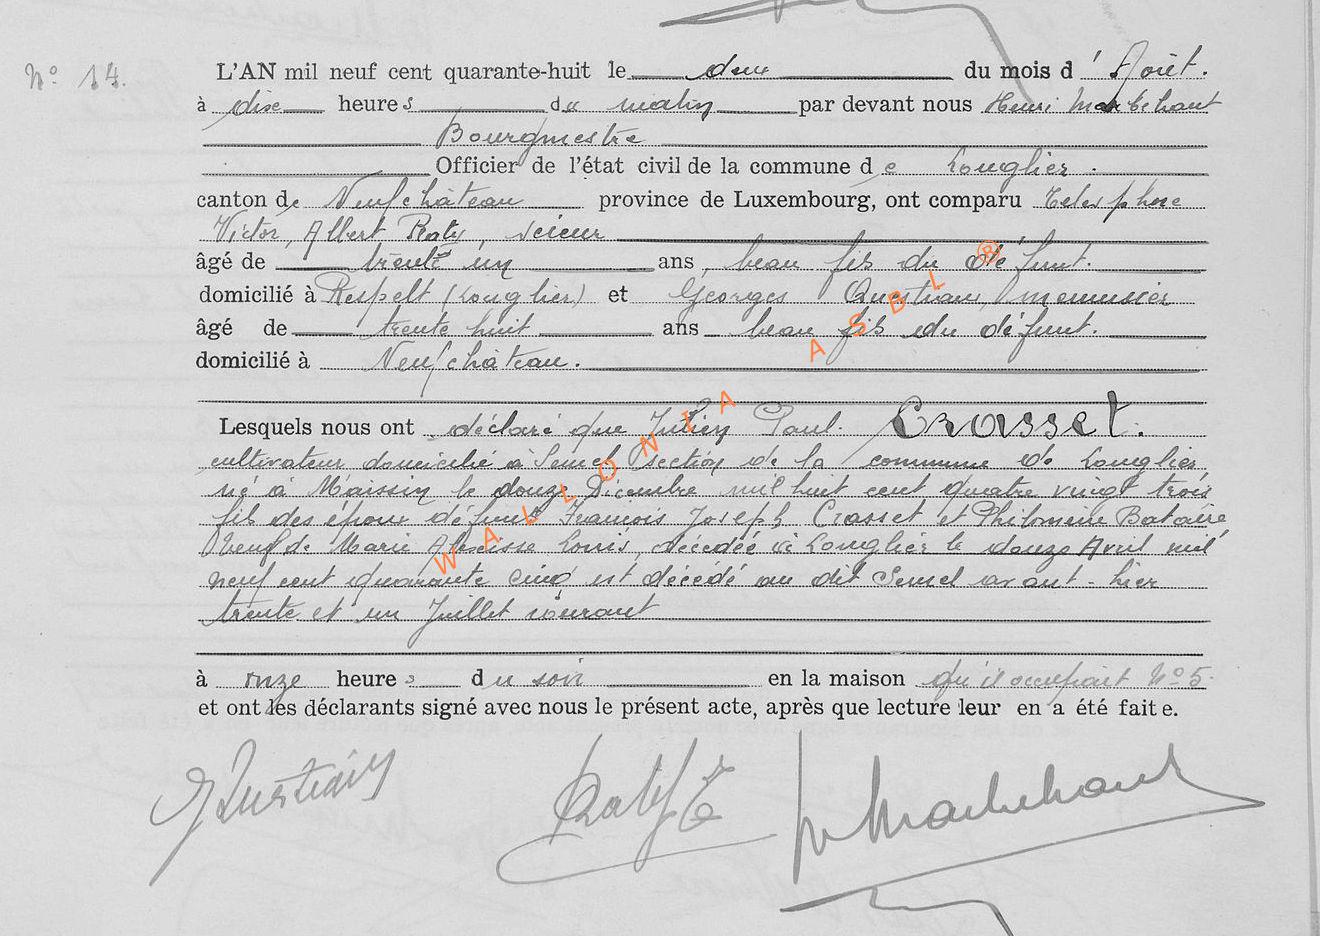 N° 14.
L'AN mil neuf cent quarante-huit le deux du mois d' Août.
à dix heures du matin par devant nous Henri Marbehant
Bourgmestre
Officier de l'état civil de la commune de Longlier.
canton de Neufchâteau province de Luxembourg, ont comparu Telesphore
Victor, Albert Raty, scieur
âgé de trente un ans, beau fils du défunt.
domicilié à Respelt (Longlier) et Georges Questiaux, menuisier
âgé de trente huit ans beau fils du défunt.
domicilié à Neufchâteau.
Lesquels nous ont déclaré que Julien Paul. Crasset.
cultivateur domicilié à Semel section de la commune de Longlier,
né à Maissin le douze Décembre mil huit cent quatre vingt trois
fils des époux défunts François Joseph Crasset et Philomène Bataire
Veuf de Marie Louis, décédée à Longlier le douze Avril mil
neuf cent quarante cinq est décédé au dit Semel avant-hier
trente et un Juillet courant
à onze heures du soir en la maison qu'il occupait N° 5.
et ont les déclarants signé avec nous le présent acte, après que lecture leur en a été faite.
G Questiaux Raty T H Marbehant
WALLONIA ASBL ®